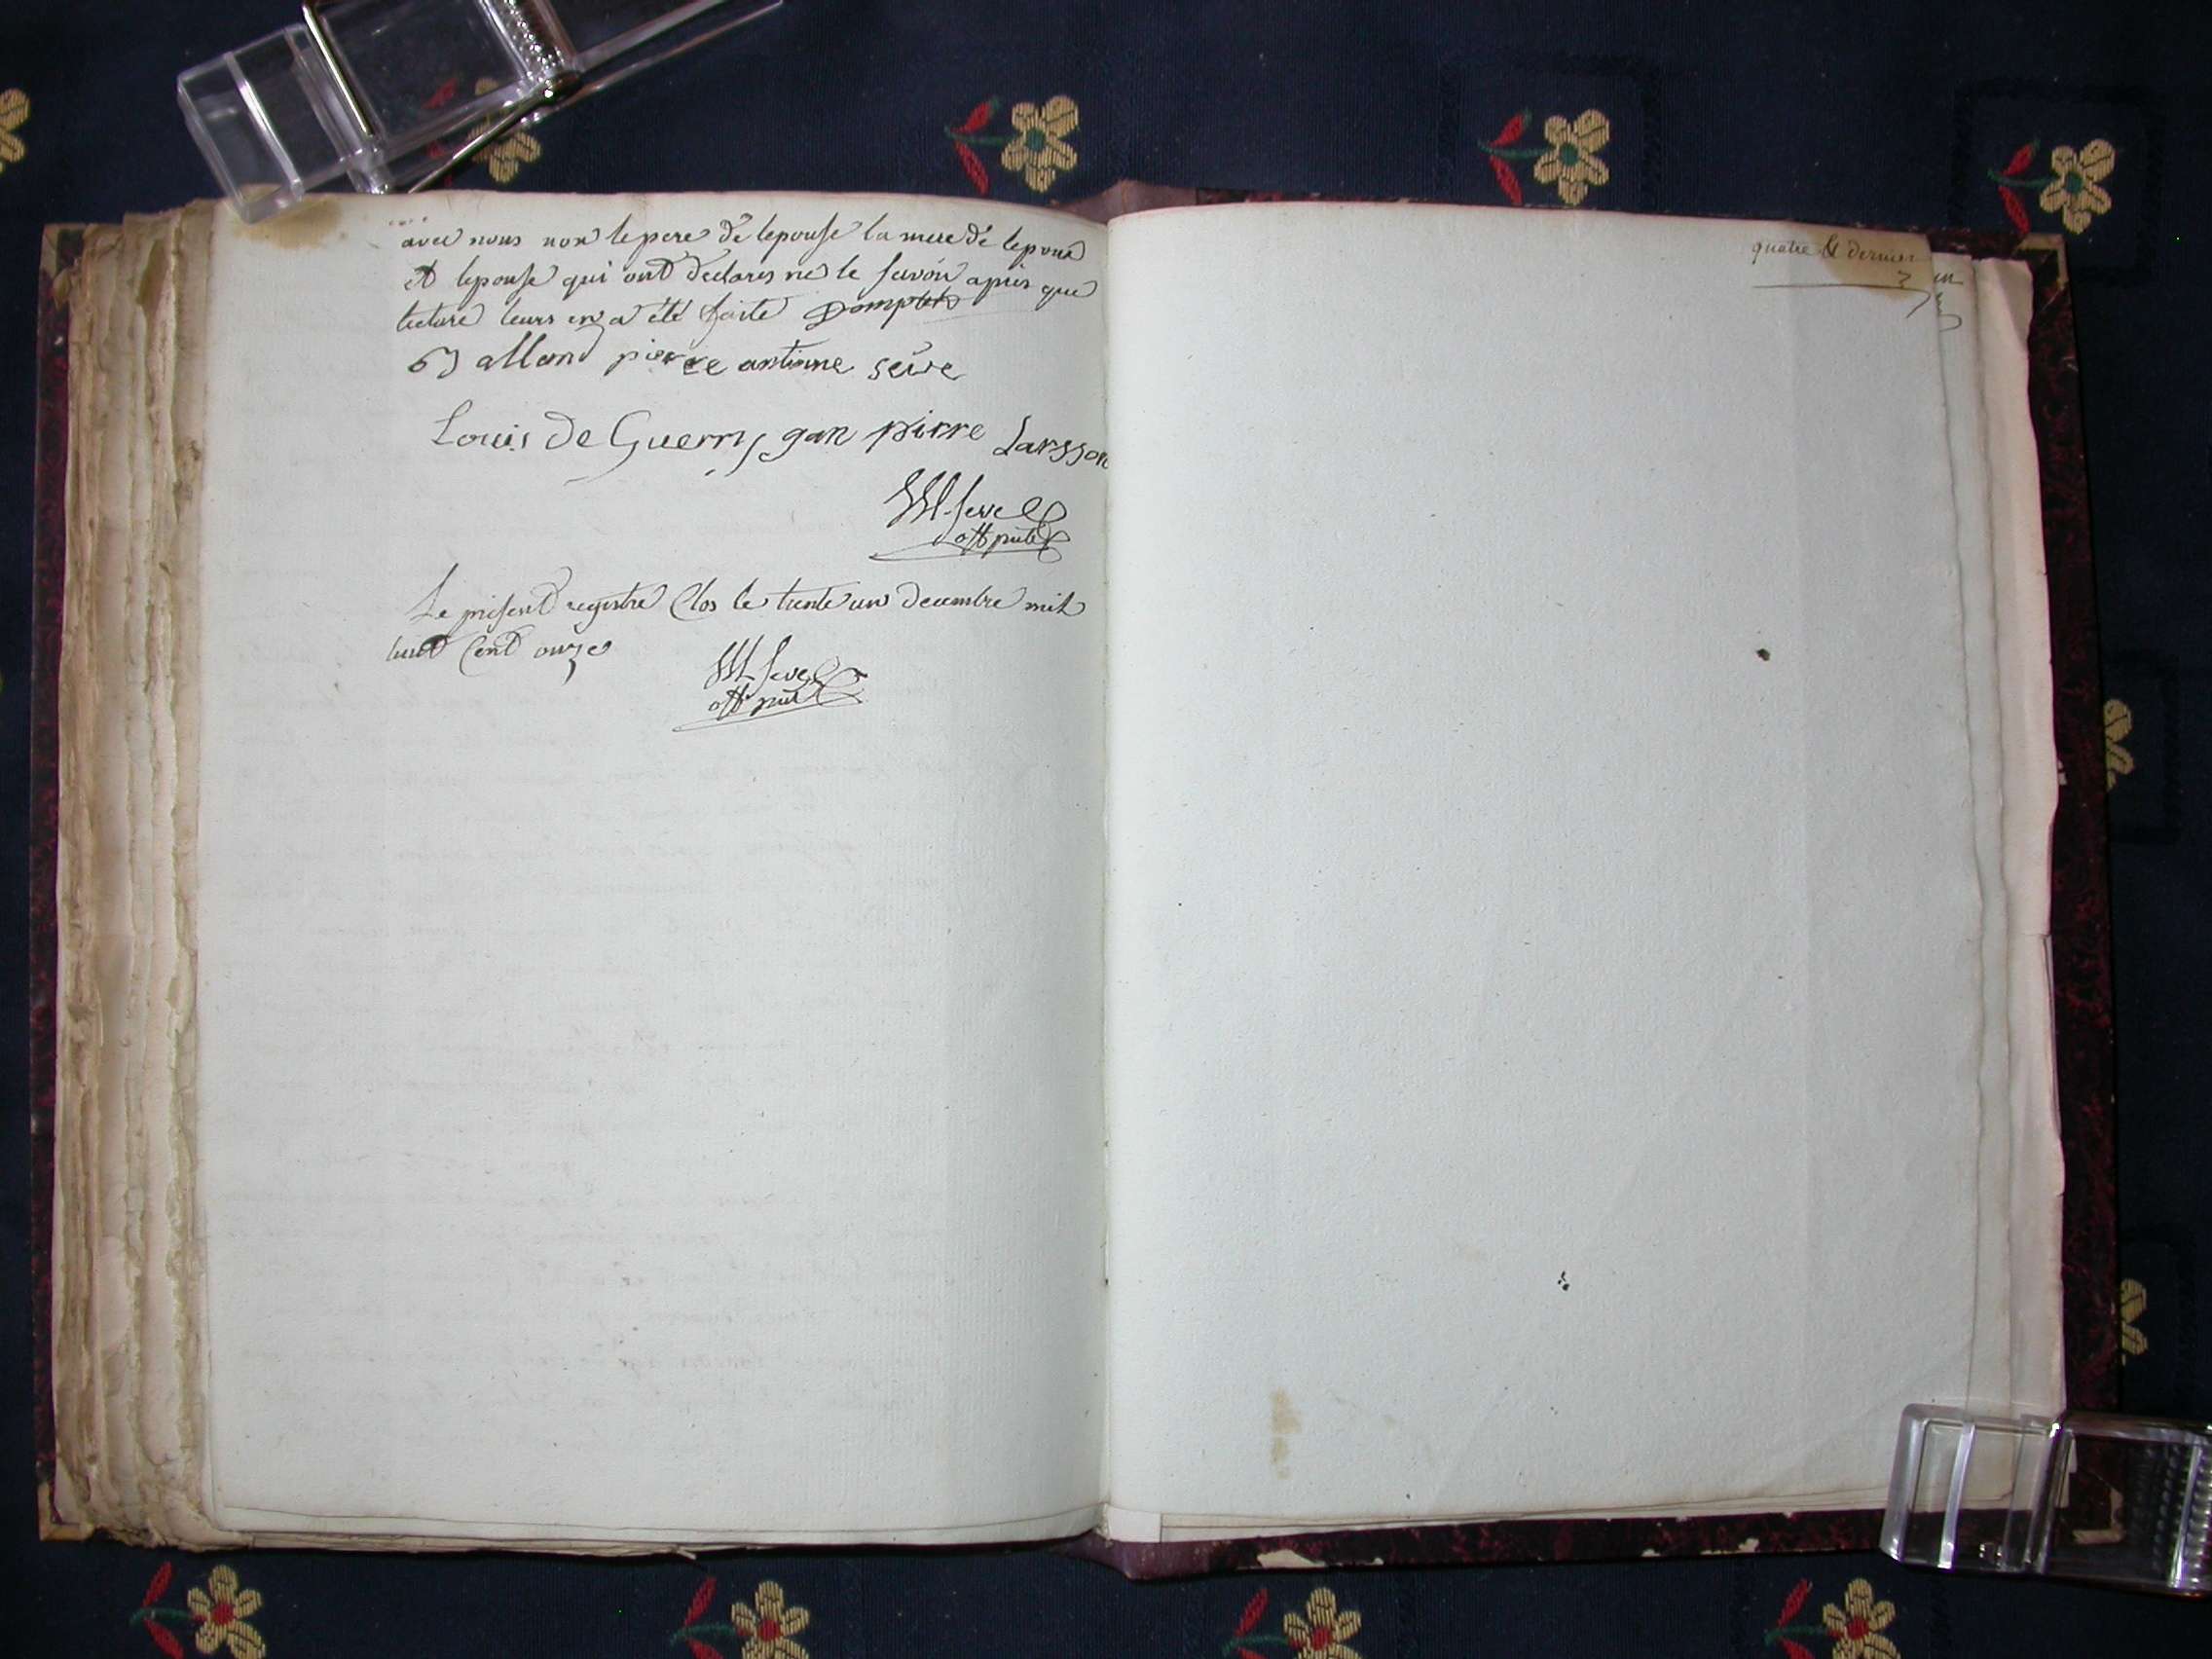 avec nous non le pere de lepouse la mere de lepoux
et lepouse qui ont declares ne le savoir apres que
lecture leurs en a été faite
alland pierre antinne seive
Louis de Guerry gan pirre Larsson
seve
off public
Le present registre Clos le trente un decembre mil
huit Cent onze
seve
off publ
quatre & dernier